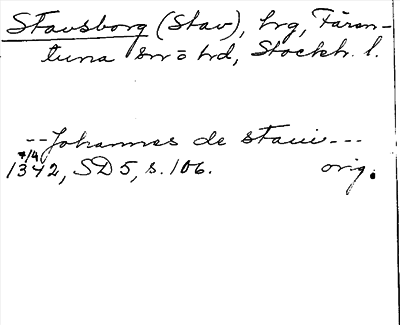 Stavsborg (Stav), hrg, Fären-
tuna sn o hd, Stockh. l.
-- Johannes de Staui ---
7/4
1342, SD 5, s. 106. orig.